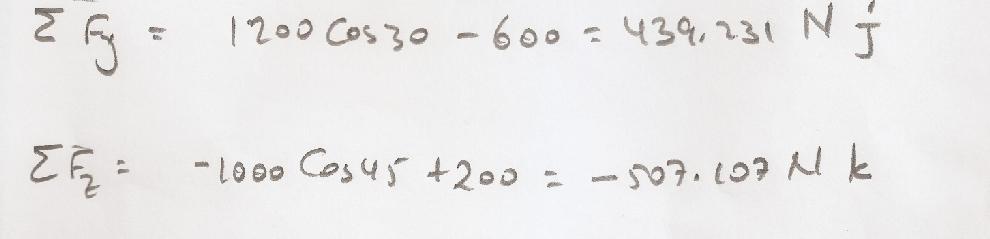 Σ Fy = 1200 Cos30 - 600 = 439.231 N j
ΣFz = -1000 Cos45 +200 = -507.107 N k